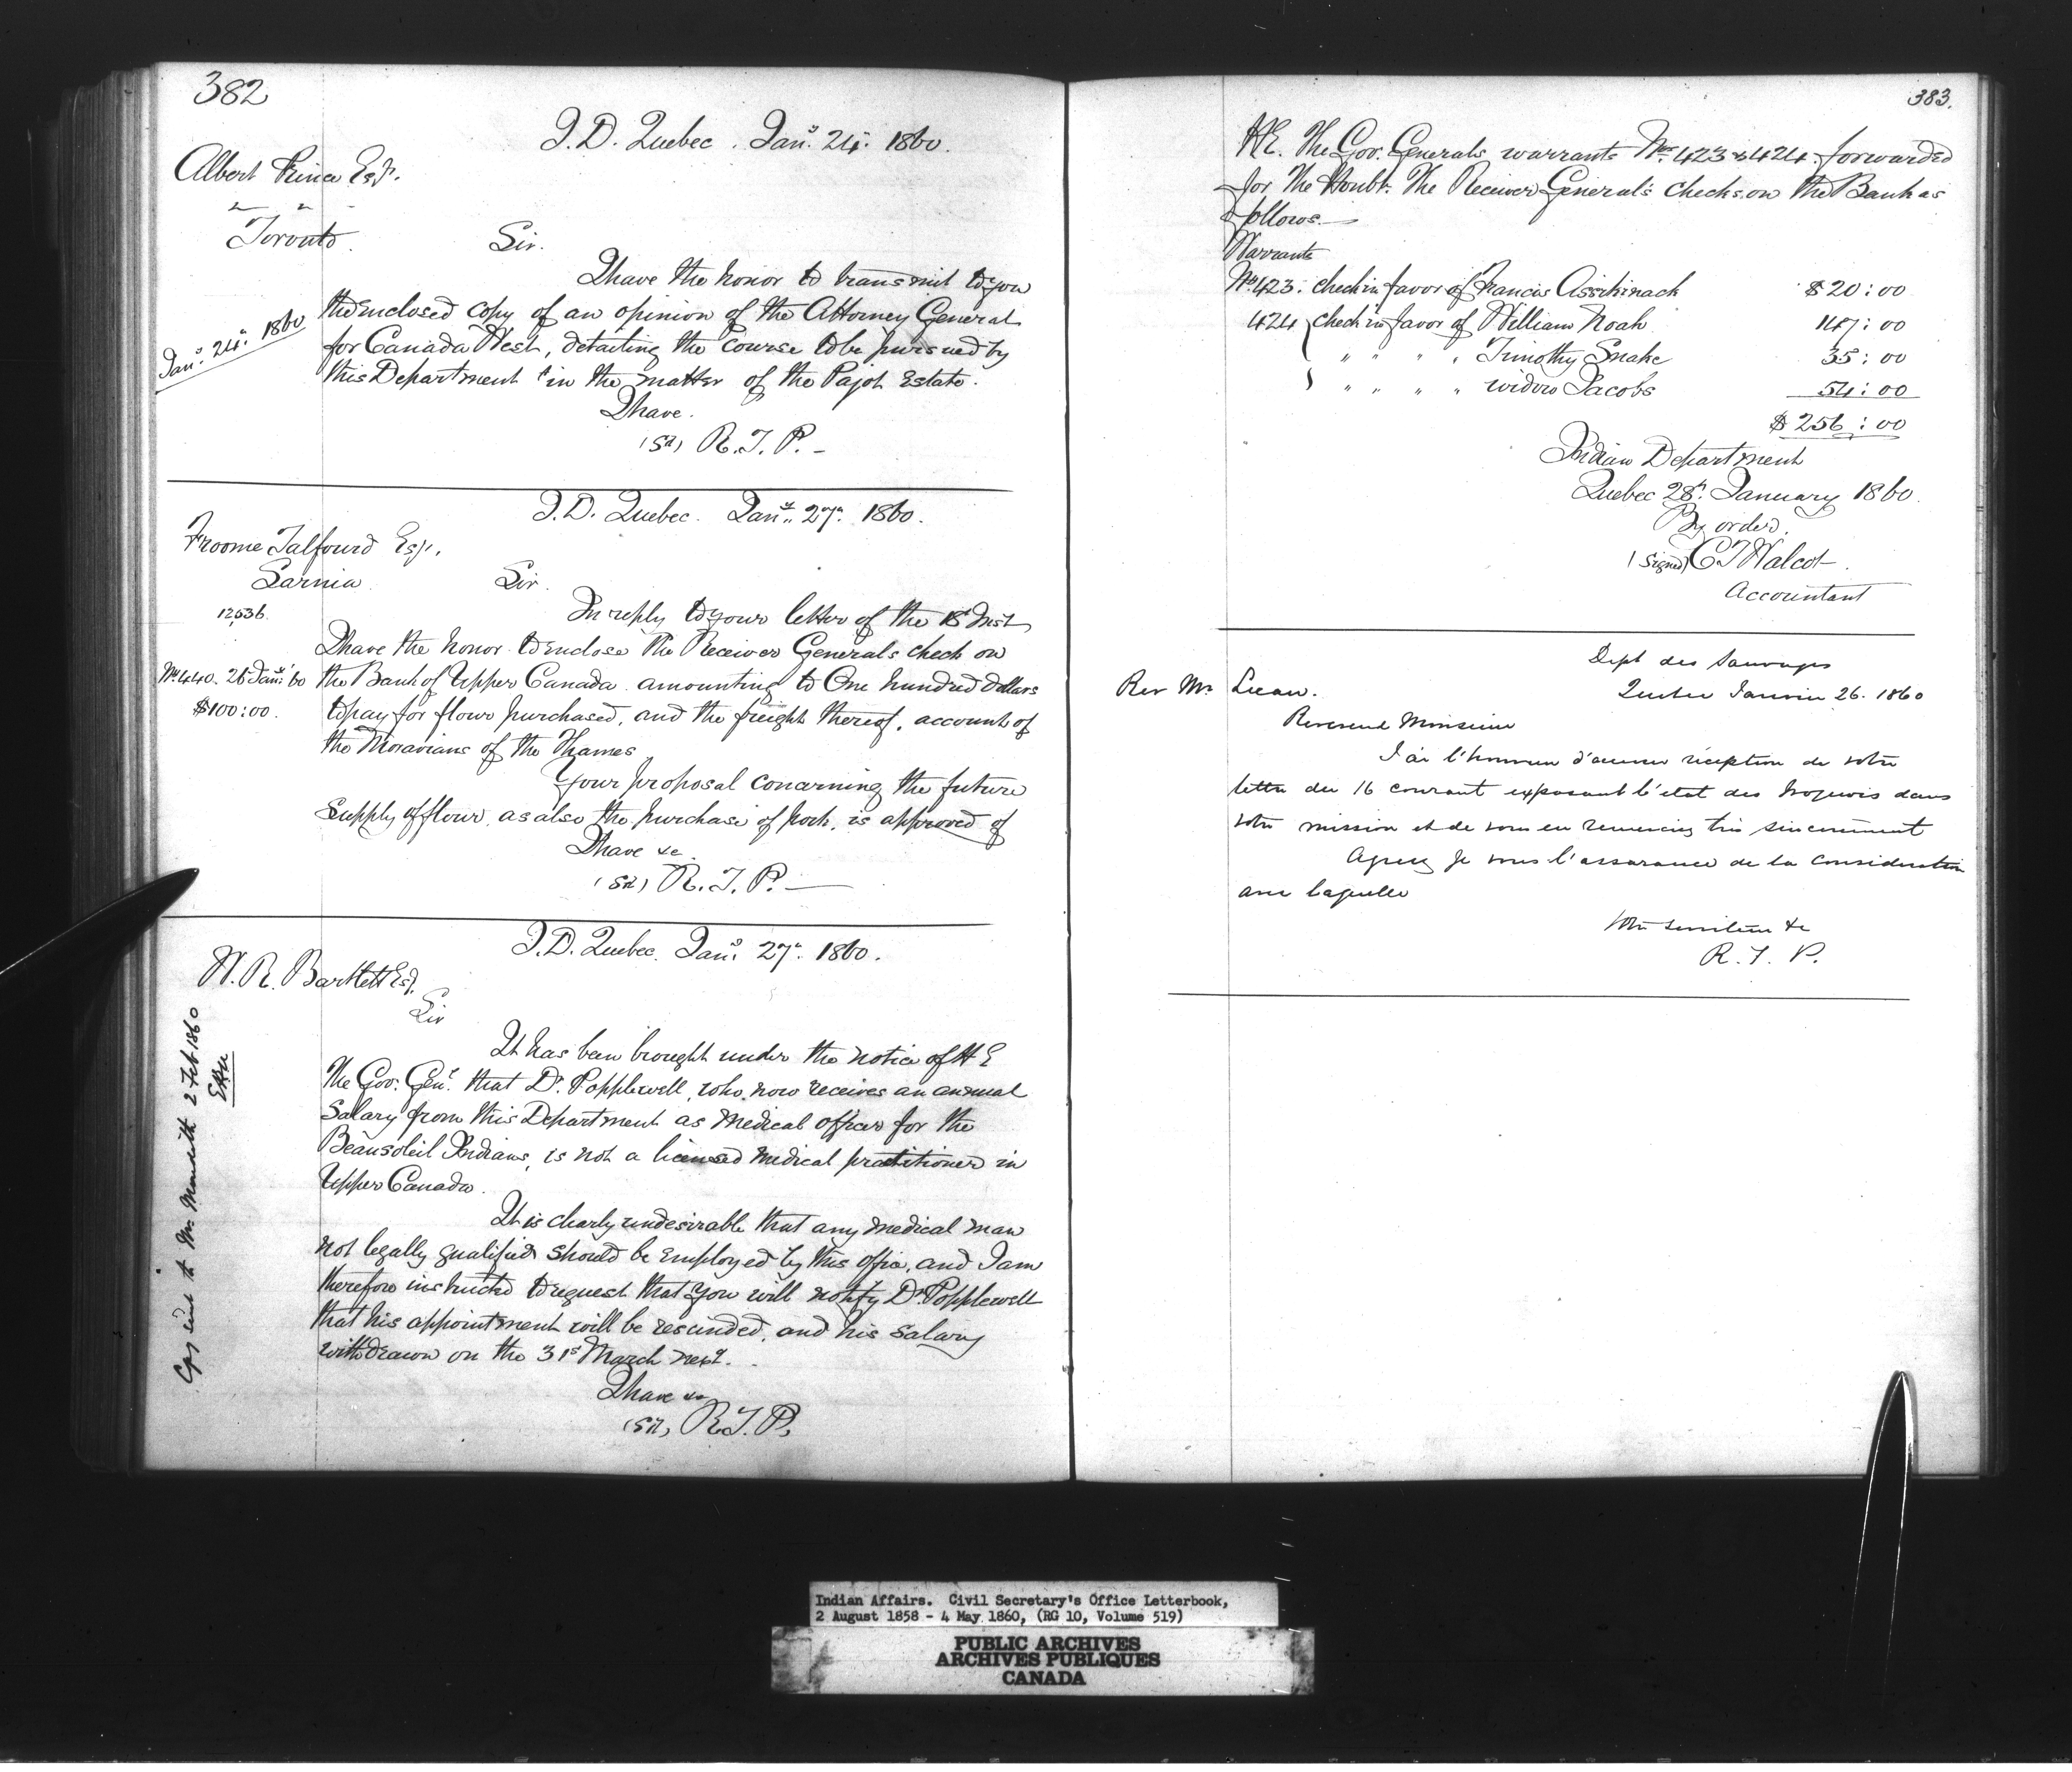 382
I. D. Quebec. Jany. 24. 1860.
Albert Prince Esqr.
" "
Toronto.
Sir.
Jany. 24. 1860
I have the honor to transmit to you
the enclosed copy of an opinion of the Attorney General
for Canada West, detailing the course to be pursued by
this Department in the matter of the Pajot Estate.
I have.
(Sd) R. T. P. –
I. D. Quebec. Jany. 27. 1860.
Froome Talfourd Esqr.
Sarnia.
Sir.
12536.
In reply to your letter of the 18 Inst
I have the honor to enclose the Receiver Generals check on
No. 440. 26 Jany. '60 the Bank of Upper Canada amounting to One hundred dollars
$100:00. to pay for flour purchased, and the freight thereof, account of
the Moravians of the Thames.
Your proposal concerning the future
supply of flour, as also the purchase of pork, is approved of
I have &c.
(Sd) R. T. P. —
I. D. Quebec. Jany. 27. 1860.
W. R. Bartlett Esq.
Sir
It has been brought under the notice of H E
The Gov. Genl. that Dr. Popplewell, who now receives an annual
salary from this Department as medical officer for the
Beausoleil Indians, is not a licensed medical practitioner in
Upper Canada.
It is clearly undesirable that any medical man
not legally qualified should be employed by this office, and I am
therefore instructed to request that you will notify Dr. Popplewell
that his appointment will be rescinded, and his salary
withdrawn on the 31st March next.
I have &c
(Sd) R. T. P.
Copy sent to Mr. 2 Feb 1860
383.
H E. The Gov. Generals warrants Nos. 423 & 424. forwarded
for The Honble. The Receiver General's checks on the Bank as
follows. —
Warrants
No. 423. check in favor of Francis Assikinack $20:00
424 { check in favor of William Noah 147:00
" " " " Timothy Snake 35:00
" " " " widow Jacobs 54:00
$256:00
Indian Department
Quebec 28th. January 1860.
By order.
(Signed) C T Walcot.
Accountant
Dept des Sauvages
Quebec Janvier 26. 1860
Rev Mr.
Reverend Monsieur
J'ai l'honneur d'accuser réception de votre
lettre du 16 courant exposant l'état des Iroquois dans
votre mission et de vous en remercier très sincèrement
Agréez je vous l'assurance de la consideration
avec laquelle
Votre serviteur &c
R. T. P.
Indian Affairs. Civil Secretary's Office Letterbook,
2 August 1858 - 4 May 1860, (RG 10, Volume 519)
PUBLIC ARCHIVES
ARCHIVES PUBLIQUES
CANADA